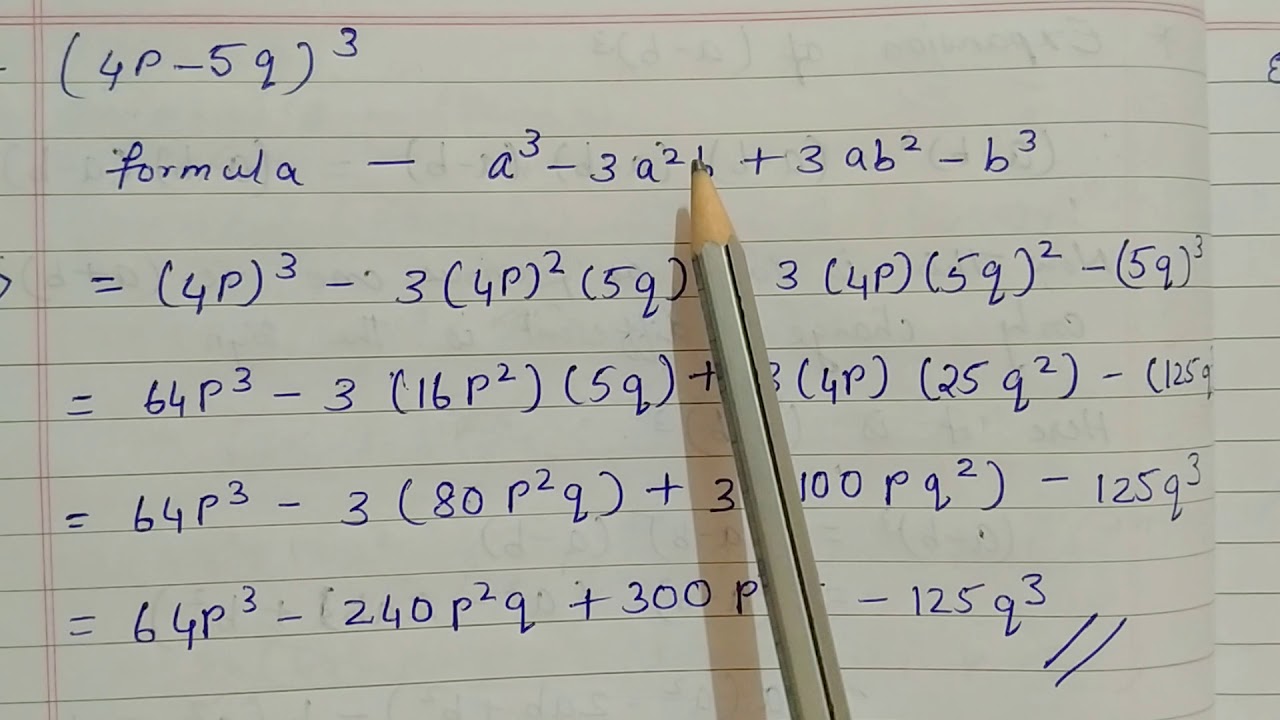 (4p-5q)³
formula — a³ - 3a²b + 3ab² - b³
= (4p)³ - 3(4p)²(5q) 3(4p)(5q)² - (5q)³
= 64p³ - 3 (16p²)(5q) + 3(4p) (25q²) - (125q
= 64p³ - 3 (80p²q) + 3 100pq²) - 125q³
= 64p³ - 240p²q + 300p - 125q³